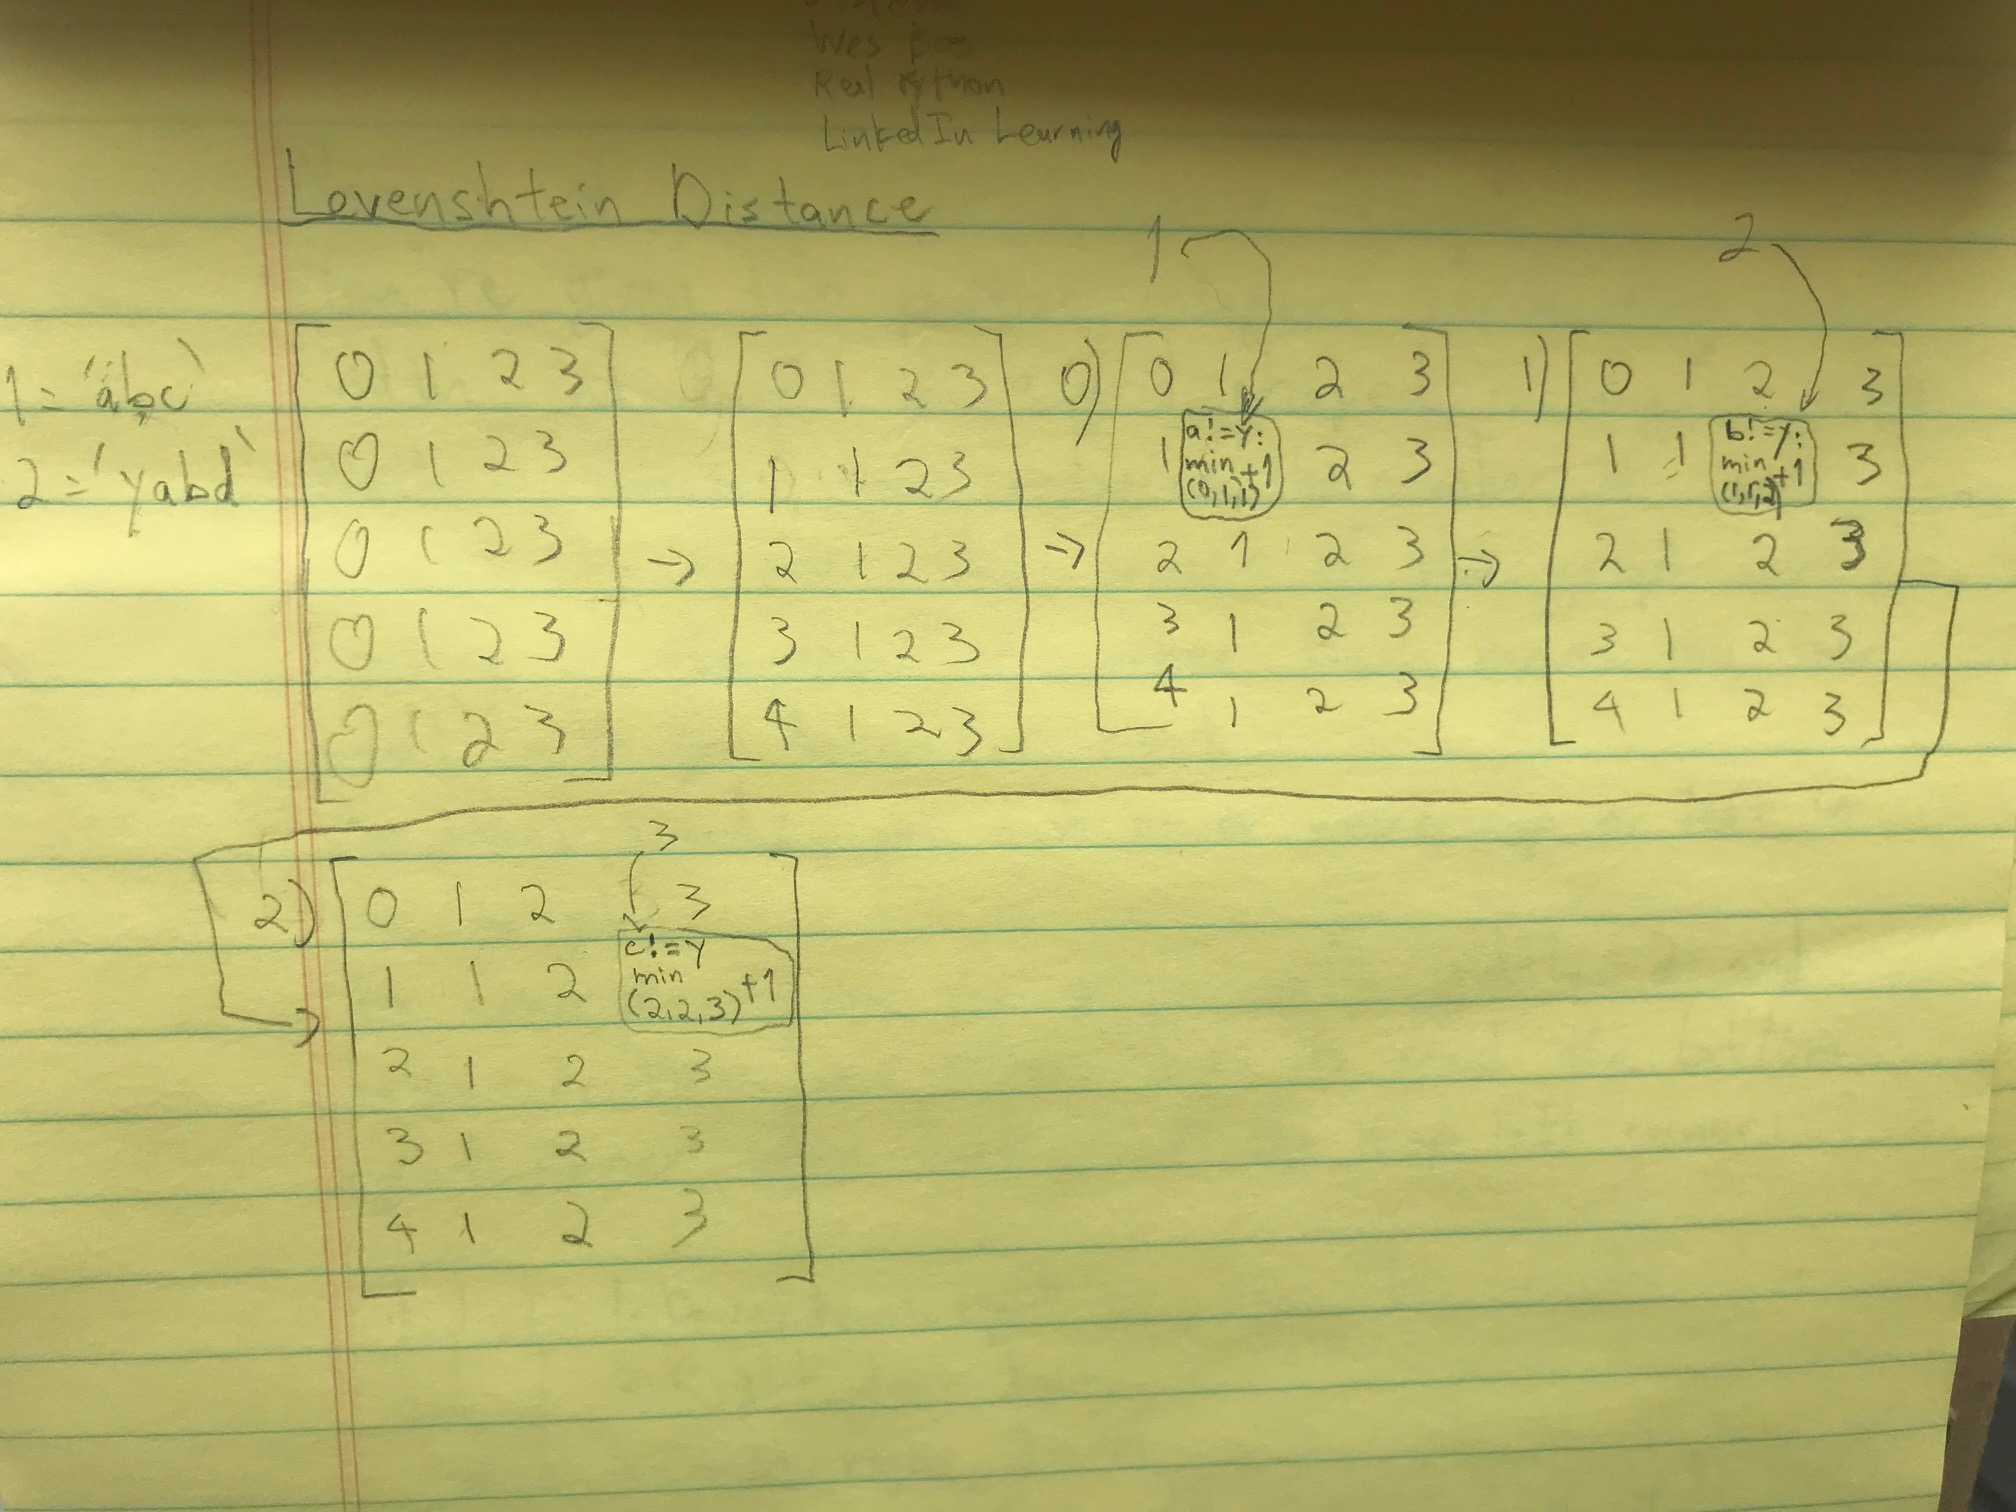 Real Python
LinkedIn Learning
Levenshtein Distance
1 = 'abc'
2 = 'yabd'
0 1 2 3
0 1 2 3
0 1 2 3
0 1 2 3
0 1 2 3
→
0 1 2 3
1 1 2 3
2 1 2 3
3 1 2 3
4 1 2 3
→
0)
1
0 1 2 3
1 a!=y: 2 3
min +1
(0,1,1)
2 1 2 3
3 1 2 3
4 1 2 3
→
1)
2
0 1 2 3
1 1 b!=y: 3
min +1
(1,1,2)
2 1 2 3
3 1 2 3
4 1 2 3
2)
3
0 1 2 3
1 1 2 c!=y
min +1
(2,2,3)
2 1 2 3
3 1 2 3
4 1 2 3